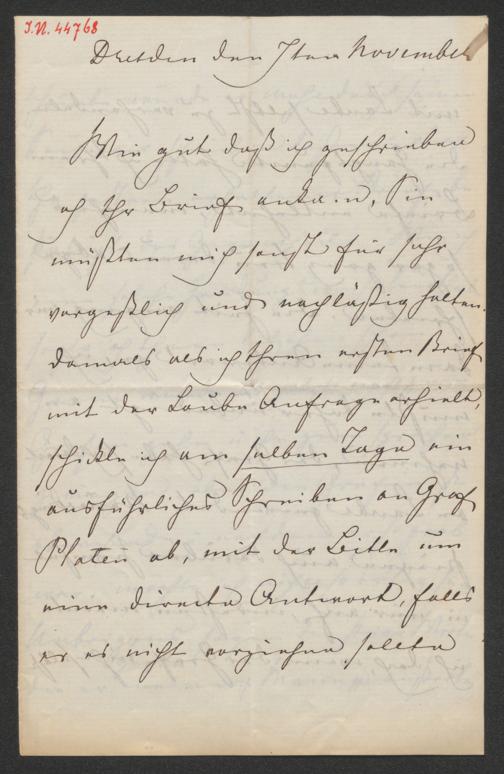 I.N. 44768
Dresden den 7ten November
Wie gut daß ich geschrieben
eh Ihr Brief ankam, Sie
müßten mich sonst für sehr
vergeßlich und nachläßig halten.
damals als ich Ihren ersten Brief
mit der Laube Anfrage erhielt,
schickte ich am selben Tage ein
ausführliches Schreiben an Graf
Platen ab, mit der Bitte um
eine directe Antwort, falls
er es nicht vorziehen sollte